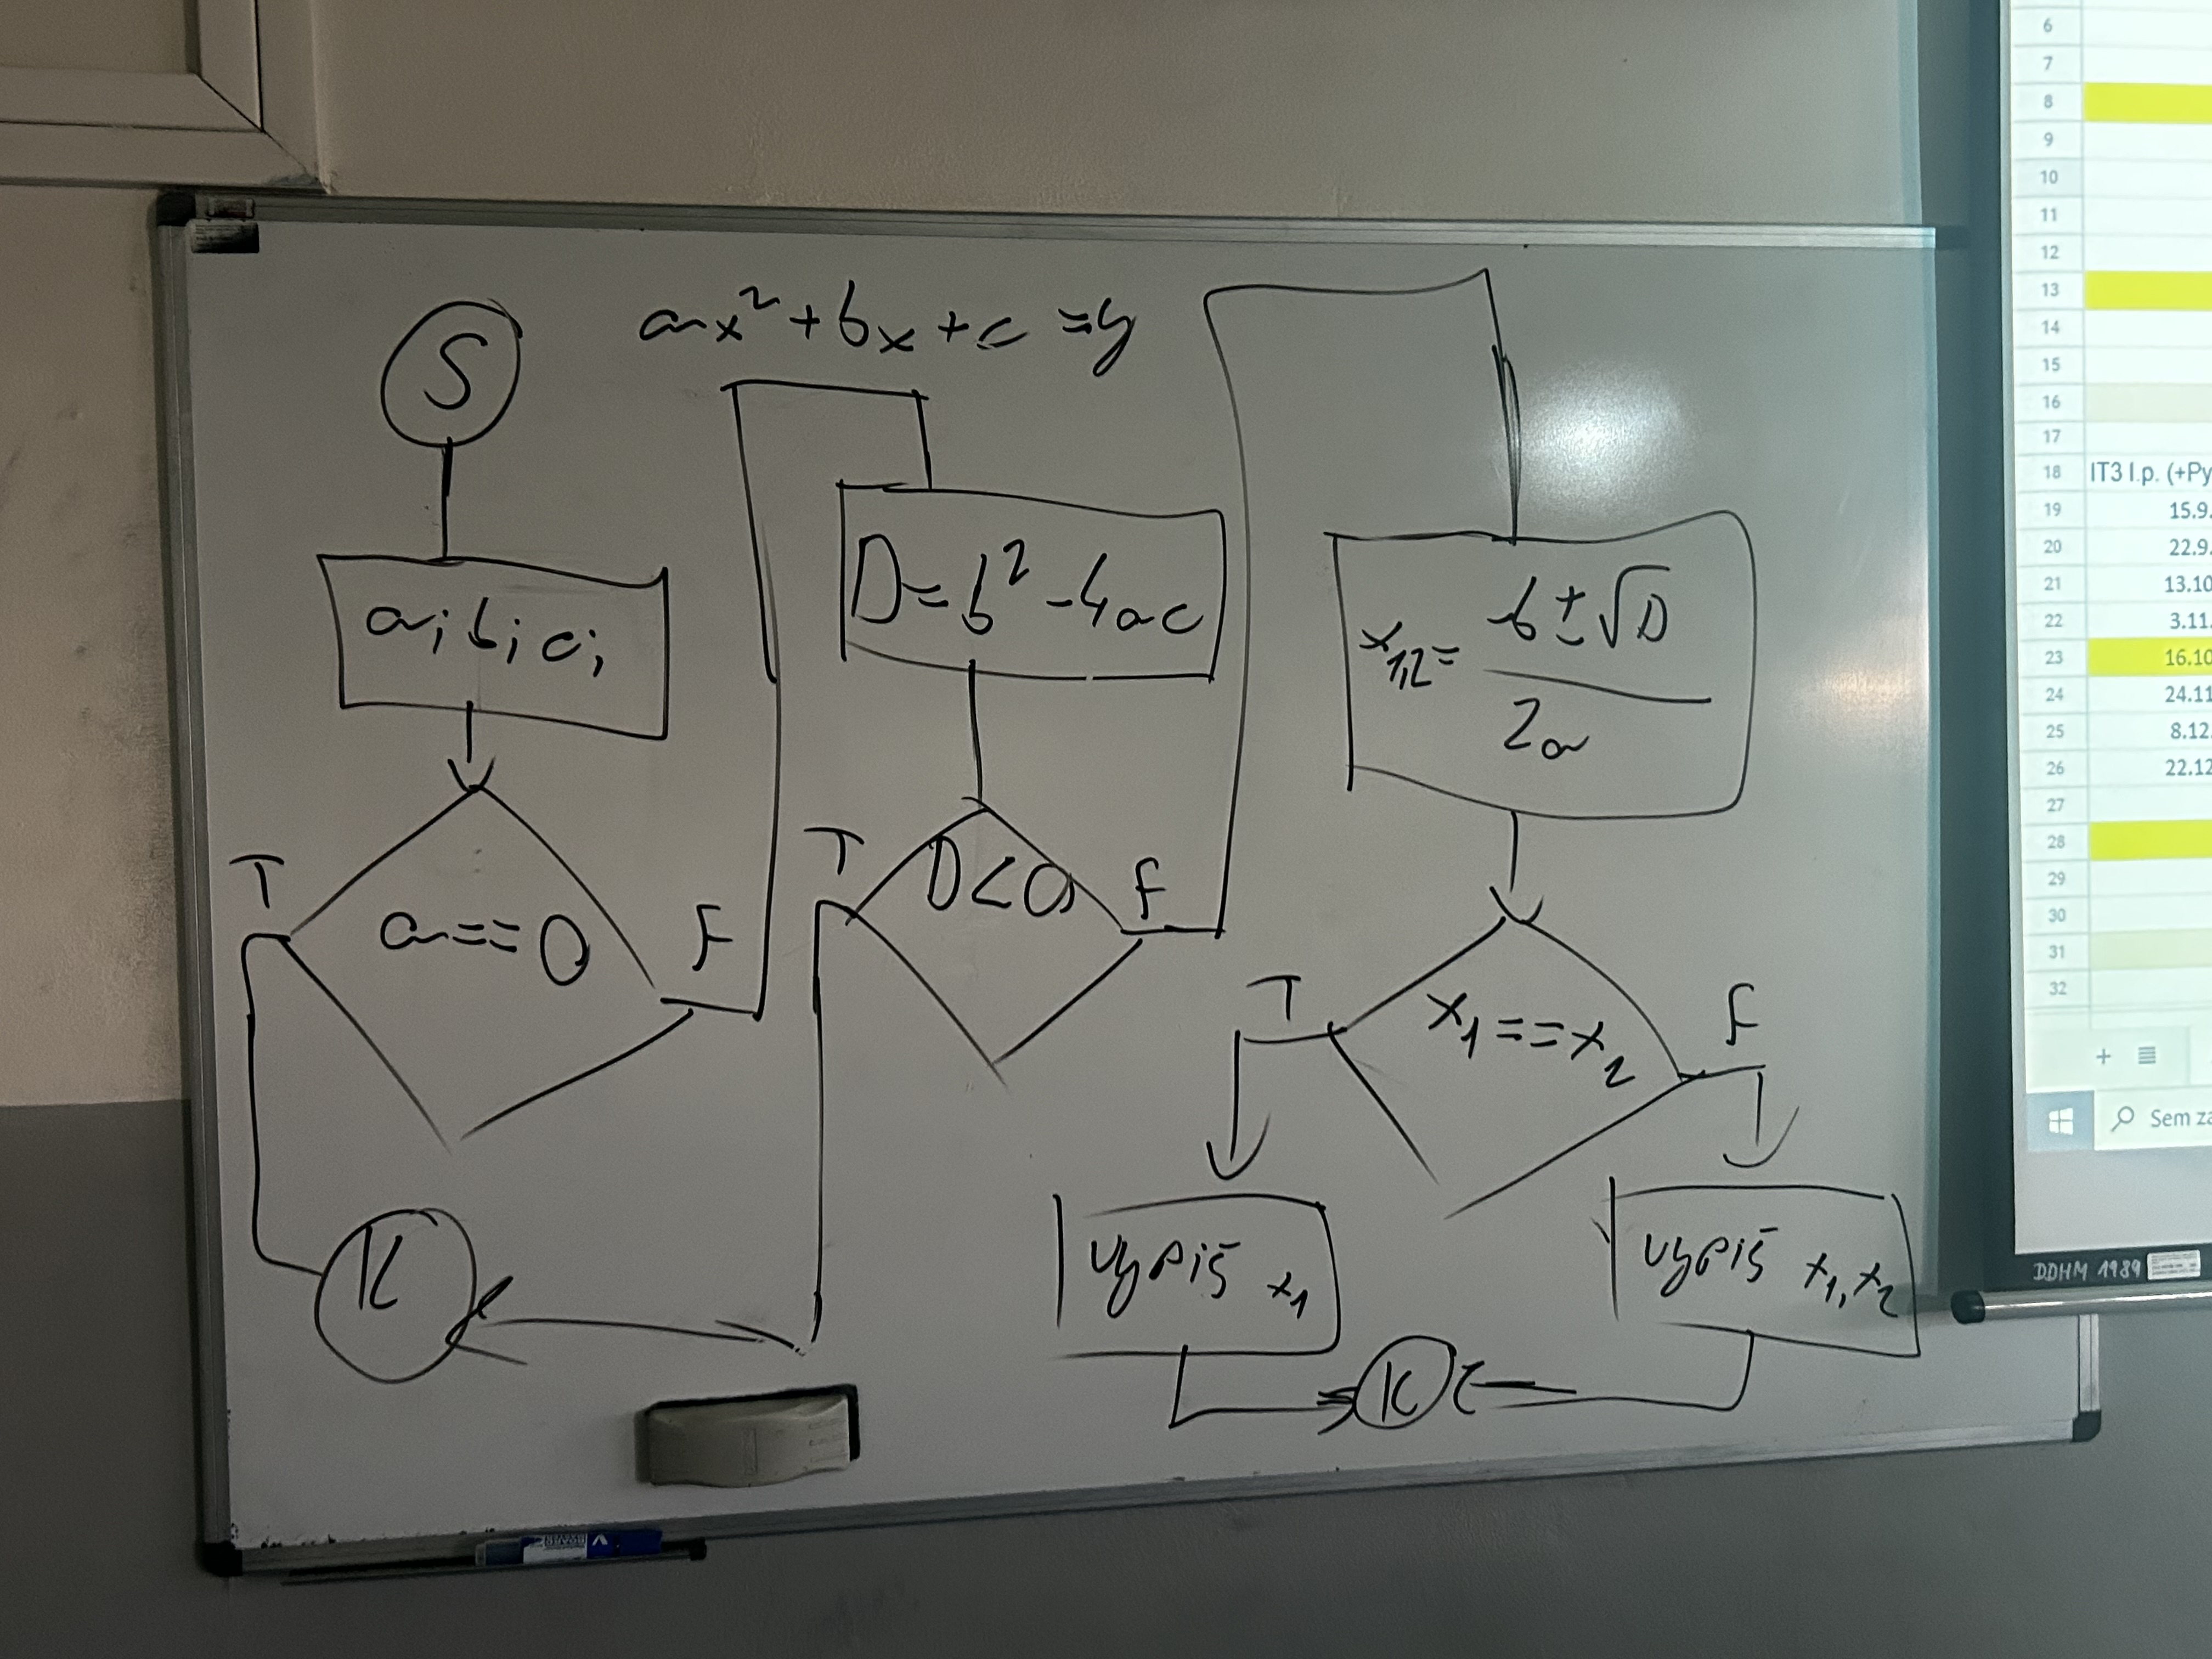 ax² + bx + c = y
S
a; b; c;
a == 0
T
F
K
D = b² - 4ac
D < 0
T
F
x₁,₂ = -b ± √D
2a
x₁ == x₂
T
F
vypiš x₁
vypiš x₁, x₂
K
6
7
8
9
10
11
12
13
14
15
16
17
18 IT3 I.p. (+Py
19 15.9.
20 22.9.
21 13.10
22 3.11.
23 16.10
24 24.11
25 8.12.
26 22.12
27
28
29
30
31
32
+
Sem za
DDHM 1989